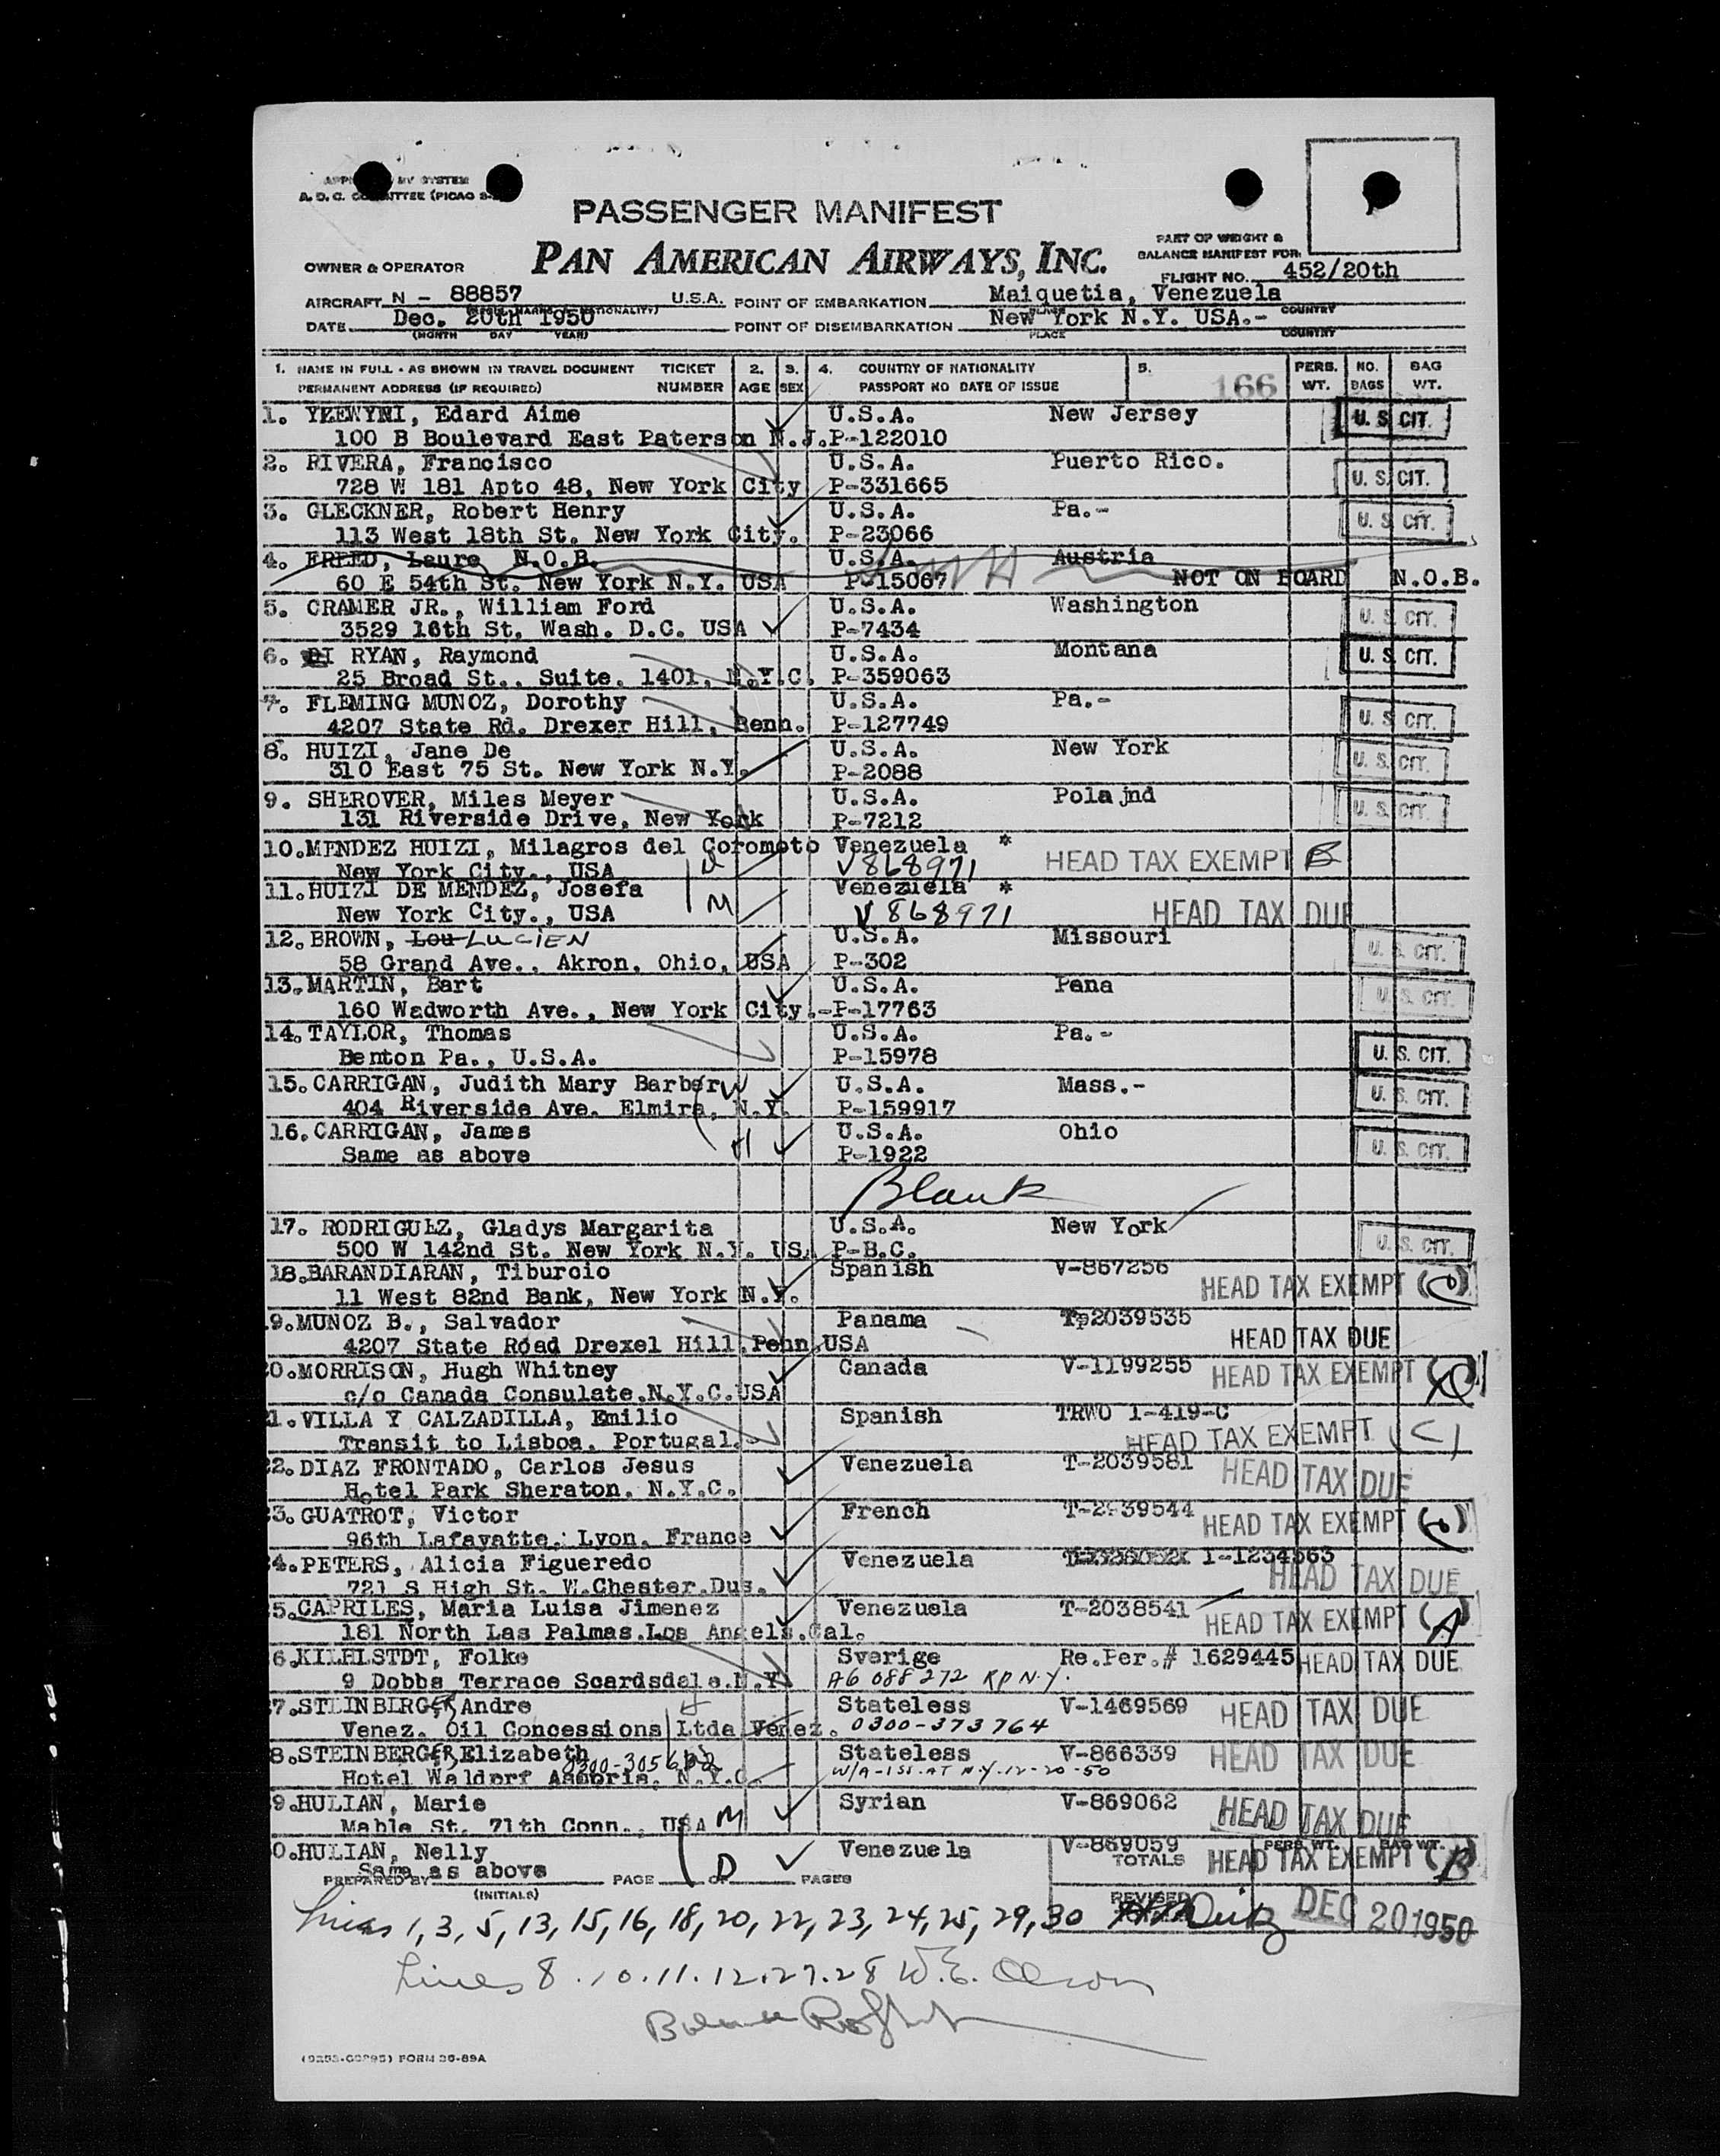 A. D. C. (PICAO
PASSENGER MANIFEST
PAN AMERICAN AIRWAYS, INC.
PART OF WEIGHT &
BALANCE MANIFEST FOR
OWNER & OPERATOR
FLIGHT NO. 452/20th
AIRCRAFT N - 88857 U.S.A. POINT OF EMBARKATION Maiquetia, Venezuela COUNTRY
DATE Dec. 20th 1950 POINT OF DISEMBARKATION New York N.Y. USA.-
(MONTH DAY YEAR) PLACE COUNTRY
1. NAME IN FULL - AS SHOWN IN TRAVEL DOCUMENT TICKET 2. 3. 4. COUNTRY OF NATIONALITY 5. PERS. NO. BAG
PERMANENT ADDRESS (IF REQUIRED) NUMBER AGE SEX PASSPORT NO DATE OF ISSUE 166 WT. BAGS WT.
1. Edard Aime U.S.A. New Jersey U.S. CIT.
100 B Boulevard East Paterson N.J. P-122010
2. RIVERA, Francisco U.S.A. Puerto Rico.
728 W 181 Apto 48, New York City P-331665 U.S. CIT.
3. GLECKNER, Robert Henry U.S.A. Pa.-
113 West 18th St. New York City. P-23066 U.S. CIT.
4. FREED, Laure N.O.B. U.S.A. Austria
60 E 54th St. New York N.Y. USA P-15067 NOT ON BOARD N.O.B.
5. CRAMER JR., William Ford U.S.A. Washington
3529 16th St. Wash. D.C. USA P-7434 U.S. CIT.
6. RYAN, Raymond U.S.A. Montana U.S. CIT.
25 Broad St., Suite. 1401, N.Y.C. P-359063
7. FLEMING MUNOZ, Dorothy U.S.A. Pa.-
4207 State Rd. Drexer Hill, Benn. P-127749 U.S. CIT.
8. HUIZI, Jane De U.S.A. New York
310 East 75 St. New York N.Y. P-2088 U.S. CIT.
9. SHEROVER, Miles Meyer U.S.A. Polajnd
131 Riverside Drive, New York P-7212 U.S. CIT.
10. MENDEZ HUIZI, Milagros del Coromoto Venezuela * HEAD TAX EXEMPT B
New York City., USA D V868971
11. HUIZI DE MENDEZ, Josefa Venezuela *
New York City., USA M V868971 HEAD TAX DUE
12. BROWN, Lou LUCIEN U.S.A. Missouri
58 Grand Ave., Akron, Ohio, USA P-302 U.S. CIT.
13. MARTIN, Bart U.S.A. Pana
160 Wadworth Ave., New York City.-P-17763 U.S. CIT.
14. TAYLOR, Thomas U.S.A. Pa.-
Benton Pa., U.S.A. P-15978 U.S. CIT.
15. CARRIGAN, Judith Mary Barber W U.S.A. Mass.-
404 Riverside Ave. Elmira, N.Y. P-159917 U.S. CIT.
16. CARRIGAN, James U.S.A. Ohio
Same as above H P-1922 U.S. CIT.
Blank
17. RODRIGUEZ, Gladys Margarita U.S.A. New York
500 W 142nd St. New York N.Y. US P-B.C. U.S. CIT.
18. BARANDIARAN, Tiburcio Spanish V-867256
11 West 82nd Bank, New York N.Y. HEAD TAX EXEMPT
9. MUNOZ B., Salvador Panama Tp2039535
4207 State Road Drexel Hill.Penn.USA HEAD TAX DUE
0. MORRISON, Hugh Whitney Canada V-1199255 HEAD TAX EXEMPT
c/o Canada Consulate.N.Y.C.USA
1. VILLA Y CALZADILLA, Emilio Spanish TRWO 1-419-C
Transit to Lisboa, Portugal. HEAD TAX EXEMPT (C)
2. DIAZ FRONTADO, Carlos Jesus Venezuela T-2039581 HEAD TAX DUE
Hotel Park Sheraton. N.Y.C.
3. GUATROT, Victor French T-2939544 HEAD TAX EXEMPT
96th Lafayatte, Lyon. France
4. PETERS, Alicia Figueredo Venezuela 1-1234563
721 S High St. W.Chester.Dus. HEAD TAX DUE
5. CAPRILES, Maria Luisa Jimenez Venezuela T-2038541 HEAD TAX EXEMPT (A)
181 North Las Palmas.Los Angels.Cal.
6. Folke Sverige Re.Per.# 1629445 HEAD TAX DUE
9 Dobbs Terrace Scardsdale.N.Y. A6 088 272 RP N.Y.
7. STEINBERGER, Andre Stateless V-1469569 HEAD TAX DUE
Venez. Oil Concessions Ltda Venez. 0300-373764
8. STEINBERGER, Elizabeth Stateless V-866339 HEAD TAX DUE
Hotel Waldorf N.Y.C. W/A-ISS. AT N.Y. 12-20-50
9. HULIAN, Marie Syrian V-869062 HEAD TAX DUE
Mable St. 71th Conn., USA M
0. HULIAN, Nelly Venezuela V-869059 PERS. WT. BAG WT.
Same as above D TOTALS HEAD TAX EXEMPT (B)
PREPARED BY PAGE OF PAGES
(INITIALS) REVISED
Lines 1, 3, 5, 13, 15, 16, 18, 20, 22, 23, 24, 25, 29, 30 DEC 20 1950
Lines 8.10.11.12.27.28 W.E. Olson
FORM 36-89A